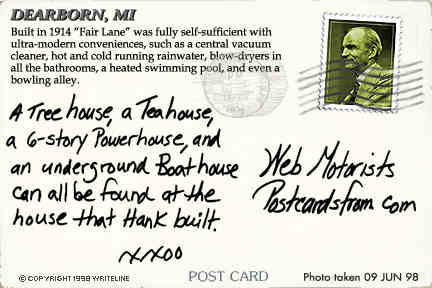 DEARBORN, MI
Built in 1914 "Fair Lane" was fully self-sufficient with
ultra-modern conveniences, such as a central vacuum
cleaner, hot and cold running rainwater, blow-dryers in
all the bathrooms, a heated swimming pool, and even a
bowling alley.
A Tree house, a Teahouse,
a 6-story Powerhouse, and
an underground Boathouse
can all be found at the
house that Hank built.
xxoo
Web Motorists
Postcardsfrom com
© COPYRIGHT 1998 WRITELINE
POST CARD
Photo taken 09 JUN 98